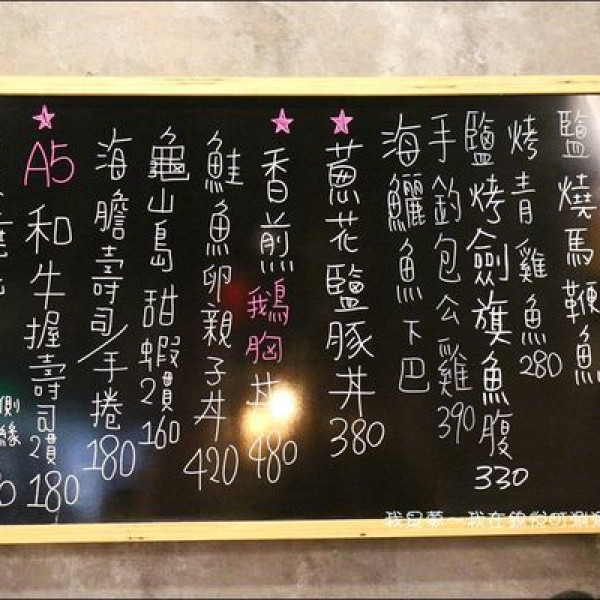 鹽燒馬鞭魚
烤青雞魚280
鹽烤劍旗魚腹330
手釣包公雞390
海鱺魚下巴
蔥花鹽豚丼380
香煎鵝胸丼480
鮭魚卵親子丼420
龜山島甜蝦2貫160
海膽壽司/手捲180
A5和牛握壽司2貫180
側緣
我是夢~我在